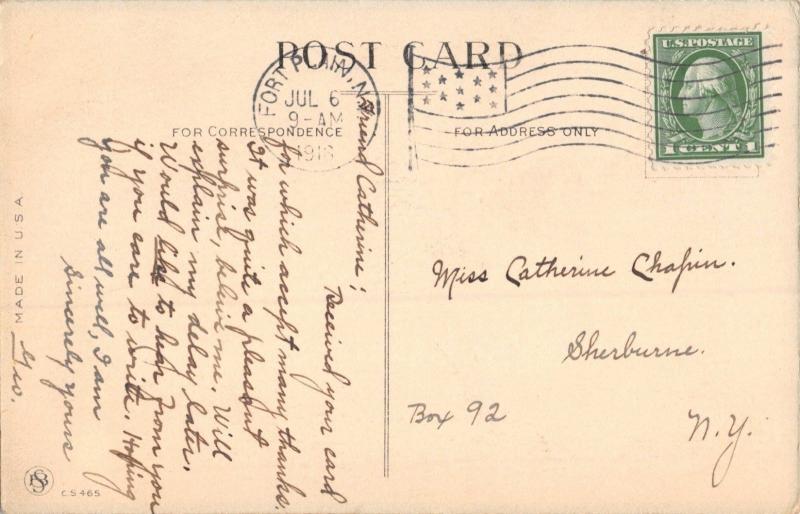 POST CARD
FORT PLAIN, N.Y.
JUL 6
9-AM
U.S. POSTAGE
1 CENT 1
FOR CORRESPONDENCE
FOR ADDRESS ONLY
Friend Catherine;
Received your card
for which accept many thanks.
It was quite a pleasent
surprise, believe me. Will
explain my delay later.
Would like to hear from you
if you care to write. Hoping
you are all well, I am
Sincerely yours
Geo.
Miss Catherine Chapin.
Sherburne.
Box 92
N.Y.
MADE IN U.S.A.
C.S. 465